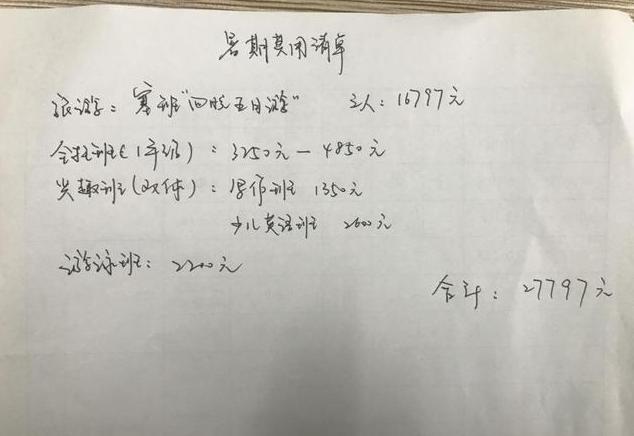 暑期费用清单
旅游：塞班“四晚五日游” 三人：16797元
全托班(1年级)：3250元—4850元
兴趣班(双休)：写作班 1350元
少儿英语班 2600元
游泳班：2200元
合计：27797元